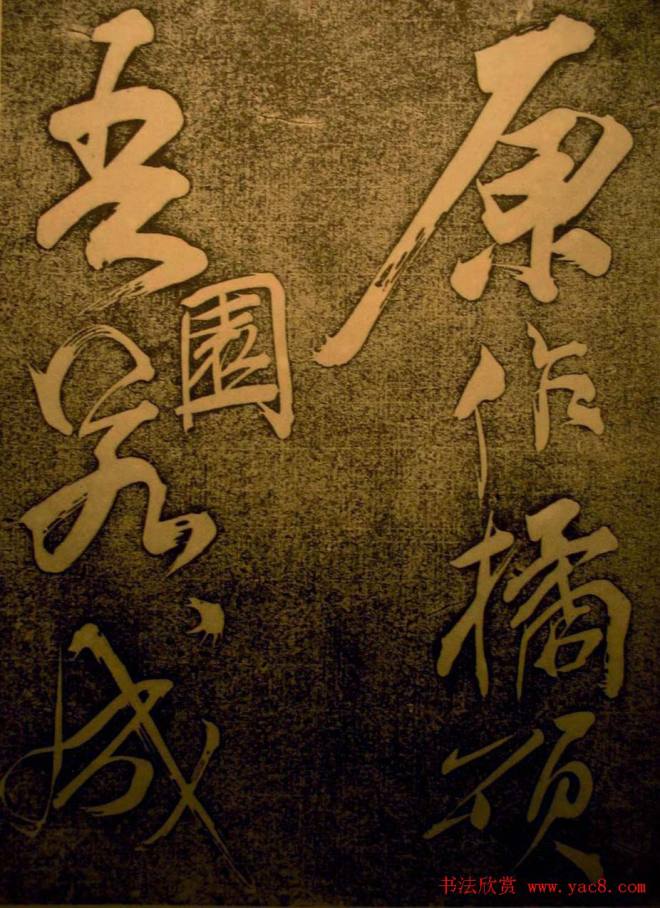 原作橘頌
吾園若成
书法欣赏 www.yac8.com